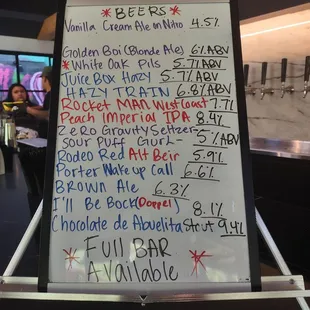 *BEERS*
Vanilla Cream Ale on Nitro 4.5%
Golden Boi (Blonde Ale) 6% ABV
*White Oak Pils 5.7% ABV
Juice Box Hazy 5.7% ABV
HAZY TRAIN 6.8% ABV
Rocket MAN West Coast 7.7%
Peach Imperial IPA 8.4%
Zero Gravity Seltzer-
Sour Puff Gurl- 5% ABV
Rodeo Red Alt Beir 5.9%
Porter Wake up Call 6.6%
BROWN Ale 6.3%
I'll Be Bock (Doppel) 8.1%
Chocolate de Abuelita Stout 9.4%
*Full BAR*
Available